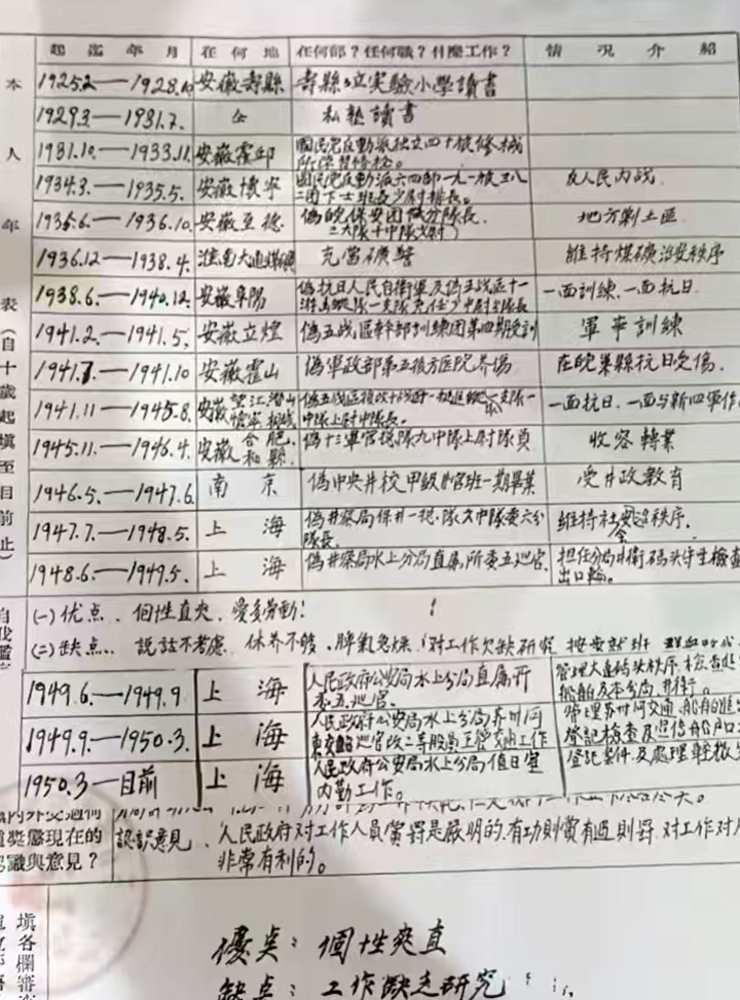 起迄年月 在何地 任何部?任何職?什麼工作? 情況介紹
本人年表(自十歲起填至目前止)
1925.2—1928.10 安徽壽縣 壽縣縣立实驗小學讀書
1929.3—1931.7. 仝 私塾讀書
1931.10—1933.11. 安徽霍邱 國民党反動派独立四十旅修械
所學習修枪。
1934.3.—1935.5. 安徽懷寧 國民党反動派六四部一九一旅三八
二團下士班長少尉排長。 反人民内战.
1935.6—1936.10. 安徽至德 偽皖保安團 分隊長.
三大隊十中隊少尉) 地方剿土匪
1936.12—1938.4. 淮南大通煤礦 充當礦警 維持煤礦治安秩序
1938.6.—1940.12. 安徽阜陽 偽抗日人民自衛軍及偽五战區十一
一面訓練.一面抗日.
1941.2.—1941.5. 安徽立煌 偽五战區幹部訓練團第四期受訓 軍事訓練
1941.7.—1941.10 安徽霍山 偽軍政部第五後方医院养傷. 在皖巢縣抗日受傷.
1941.11—1945.8. 安徽望江潛山
懷寧桐城
中隊上尉中隊長. 一面抗日.一面与新四軍作
1945.11.—1946.4. 安徽合肥.
和縣. 偽十三軍官總隊九中隊上尉隊員 收容轉業
1946.5.—1947.6. 南京 偽中央井校甲級井官班一期畢業 受井政教育
1947.7.—1948.5. 上海 偽井察局保井一總隊又中隊委六分
隊長. 維持社会安㝎秩序.
1948.6.—1949.5. 上海 偽井察局水上分局直屬所委五巡官. 担任分局井衛碼头守生檢查
出口輪。
(一)优点.. 個性直夾、愛多勞動!
(二)缺点... 說話不考慮.休养不够.脾氣急燥.对工作欠缺研究 按步就班
1949.6.—1949.9 上海 人民政府公安局水上分局直屬所
委五巡官. 管理大达碼头秩序.檢查進
船舶及本分局.井衛。
1949.9—1950.3. 上海 人民政府公安局水上分局苏州河
管理苏州河交通.船舶進出
登記檢查及過停船户口
1950.3—目前 上海 人民政府公安局水上分局值日室
内勤工作。 登記案件.及處理輕微
獎懲現在的
認識與意見?
認識意見. 人民政府对工作人員賞罸是嚴明的.有功則賞有過則罸.对工作对人
非常有利的。
填各欄審
優点:個性爽直
缺点:工作缺乏研究